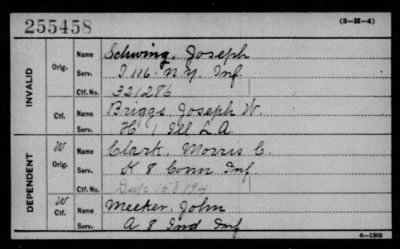 255458
(3-H-4)
INVALID
Orig.
Name Schwing, Joseph
Serv. I 116. N.Y. Inf
Ctf. No. 321286
Ctf.
Name Briggs, Joseph W.
Serv. H 1 Ill L A
DEPENDENT
W Orig.
Name Clark, Morris C.
Serv. K 8 Conn Inf
Ctf. No. 158194
W Ctf.
Name Meeker, John
Serv. A 8 Ind Inf